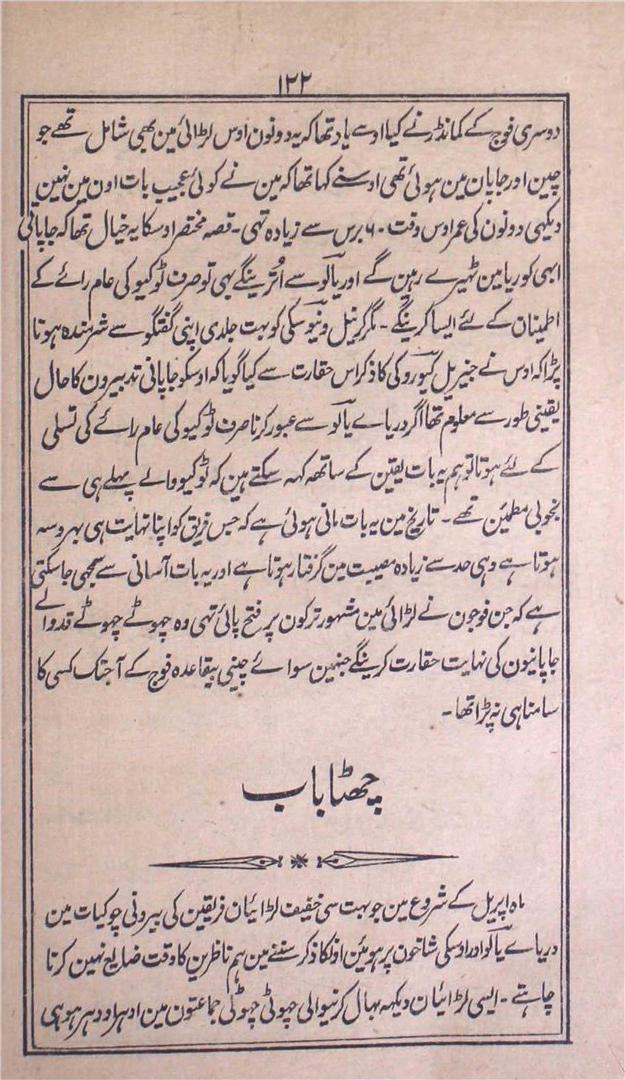 ۱۲۲
دوسری فوج کے کمانڈر نے کیا اوسے یاد تھا کہ یہ دونون اوس لڑائی مین بھی شامل تھے جو
چین اور جاپان مین ہوئی تھی اوسنے کہا تھا کہ مین نے کوئی عجیب بات اون مین نہین
دیکھی دونون کی عمر اوس وقت ۶۰ برس سے زیادہ تہی۔ قصہ مختصر اوسکا یہ خیال تھا کہ جاپانی
ابھی کوریا مین ٹہیرے رہین گے اور یالو سے اُترینگے بہی تو صرف ٹوکیو کی عام رائے کے
اطمینان کے لئے ایسا کرینگے۔ مگر کرنیل ونیوسکی کو بہت جلدی اپنی گفتگو سے شرمندہ ہونا
پڑا کہ اوس نے جنیرل کیوروکی کا ذکر اس حقارت سے کیا گویا کہ اوسکو جاپانی تدبیرون کا حال
یقینی طور سے معلوم تھا اگر دریاے یالو سے عبور کرنا صرف ٹوکیو کی عام رائے کی تسلی
کے لئے ہوتا تو ہم یہ بات یقین کے ساتھہ کہہ سکتے ہین کہ ٹوکیو والے پہلے ہی سے
بخوبی مطمئن تھے۔ تاریخ مین یہ بات مانی ہوئی ہے کہ جس فریق کو اپنا نہایت ہی بہروسہ
ہوتا ہے وہی حد سے زیادہ مصیبت مین گرفتار ہوتا ہے اور یہ بات آسانی سے سمجہی جا سکتی
ہے کہ جن فوجون نے لڑائی مین مشہور ترکون پر فتح پائی تہی وہ چہوٹے چہوٹے قد والے
جاپانیون کی نہایت حقارت کرینگے جنہین سوائے چینی بیقاعدہ فوج کے آجتک کسی کا
سامنا ہی نہ پڑا تھا۔
چھٹا باب
ماہ اپریل کے شروع مین جو بہت سی خفیف لڑائیان فریقین کی بیرونی چوکیات مین
دریاے یالو اور اوسکی شاخون پر ہوئین اونکا ذکر سننے مین ہم ناظرین کا وقت ضایع نہین کرنا
چاہتے۔ ایسی لڑائیان دیکھہ بہال کرنیوالی چہوٹی چہوٹی جماعتون مین ادہر اودہر ہو ہی